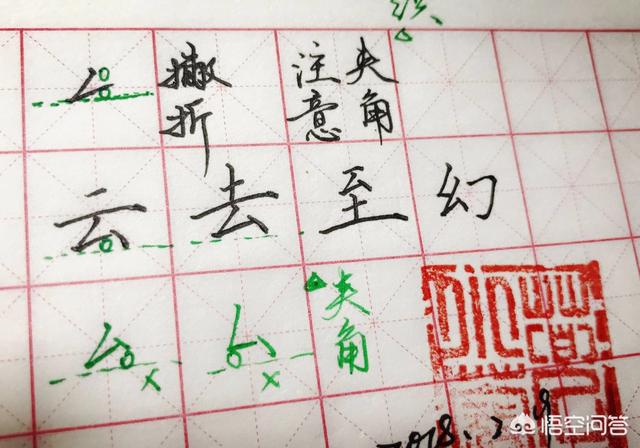 撇折
注意
夹角
云去至幻
夹角
x x
悟空问答